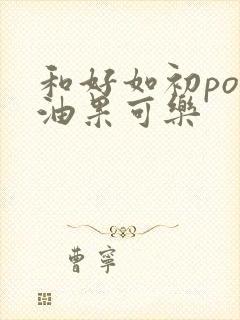 和好如初po
油果可樂
曹寧